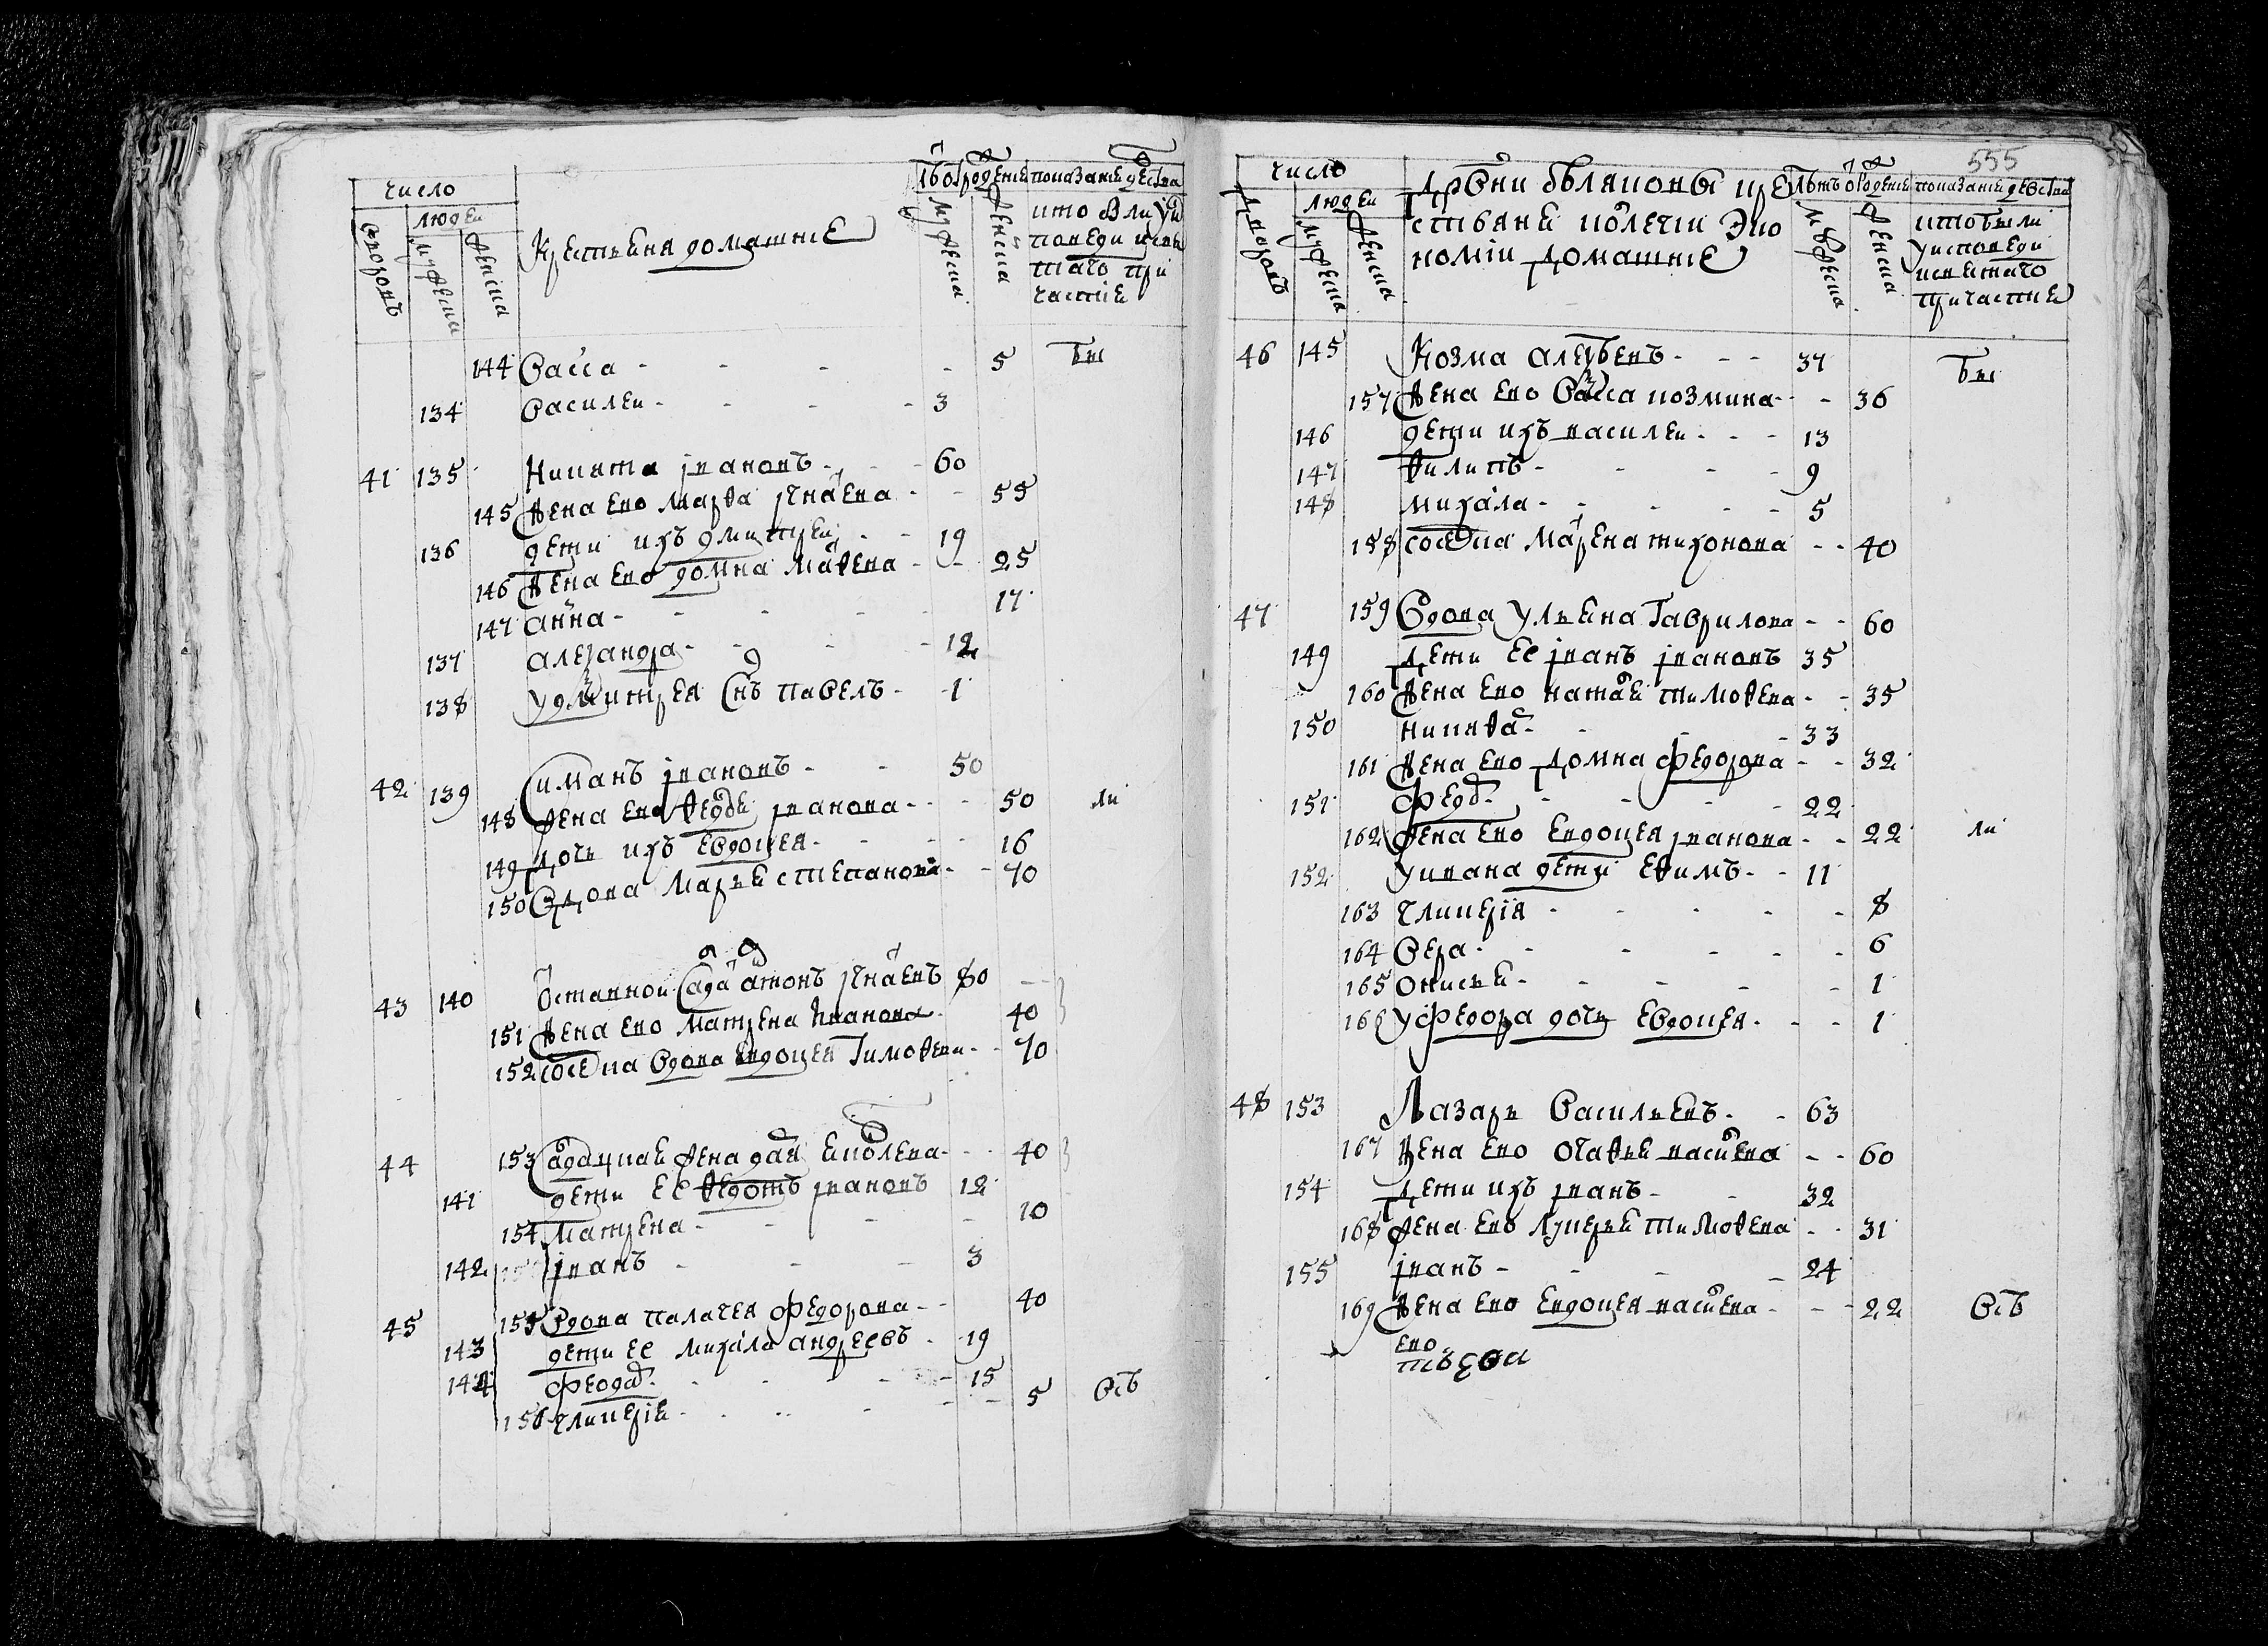 число
людеи
дворовъ
мужеска
женска
Крестьяня домашние
лѣтъ от рождения
мужеска
женска
показание действа
кто были у испо
веди и свя
таго при
частия
144 Васса - - - - 5 бы
134 Василеи - - - - 3
41 135 Никита Iвановъ - - - 60
145 Жена ево Марфа Iгнатева - - 55
136 дети ихъ Дмитреи - - 19
146 Жена ево Домна Матфева - - 25
147 анна - - - - 17
137 алеѯандра - - - - 12
138 у дмитрея снъ павелъ - - 1
42 139 Симанъ Iвановъ - - 50
148 Жена ево Федося Iванова - - 50 ли
149 дочь ихъ Евдокея - - - 16
150 Вдова Марья степанова - - 70
43 140 Отставнои салдатъ антонъ Iгнатевъ 80
151 Жена ево Матрена Иванова - 40
152 соседка Вдова Евдокея Тимофеева - - 70
44 153 салдацкая жена дарья Яковлева - - 40
141 дети ее Федотъ Iвановъ 12
154 Матрена - - - - 10
142 Iванъ - - - 3
45 155 Вдова палагея Федорова - - 40
143 дети ее михаила андреевъ - 19
144 Федор - - - - 15
156 гликерiя - - - - 5 всѣ
555
число
людеи
дворовъ
мужеска
женска
Дрвни
кре
стьяня коллегии Эко
номiи домашние
лѣтъ от рождения
мужеска
женска
показание действа
кто были
у исповеди
и святаго
причастия
46 145 Козма алеѯеевъ - - - 37 бы
157 Жена ево Васса козмина - - 36
146 дети ихъ василеи - - - 13
147 Филипъ - - - - 9
148 михаила - - - - 5
158 соседка Марена тихонова - - 40
47 159 Вдова Ульяна Гаврилова - - 60
149 дети ее Iванъ Iвановъ 35
160 Жена ево наталя тимофева - - 35
150 никифор - - - 33
161 Жена ево домна федорова - - 32
151 Федор - - - - 22
162 Жена ево Евдокея Iванова - - 22 ли
152 У ивана дети Ефимъ - - 11
163 гликерiя - - - - 8
164 Вера - - - - 6
165 Онисья - - - - 1
166 у Федора дочь Евдокея - - - 1
48 153 Лазарь Васильевъ - - 63
167 Жена ево Огафья васильева - - 60
154 дети ихъ Iванъ - - 32
168 Жена ево Лукерья тимофева - - 31
155 Iванъ - - - - 24
169 Жена ево Евдокея васильева - - - 22 всѣ
ево